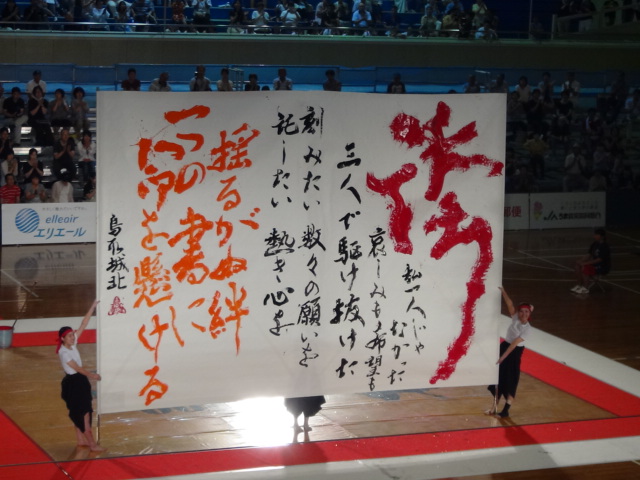 私一人じゃ
なかった
哀しみも希望も
三人で駆け抜けた
刻みたい 数々の願いを
託したい 熱き心を
揺るがぬ絆
この書に
を懸ける
鳥取城北
elleair
エリエール
JA